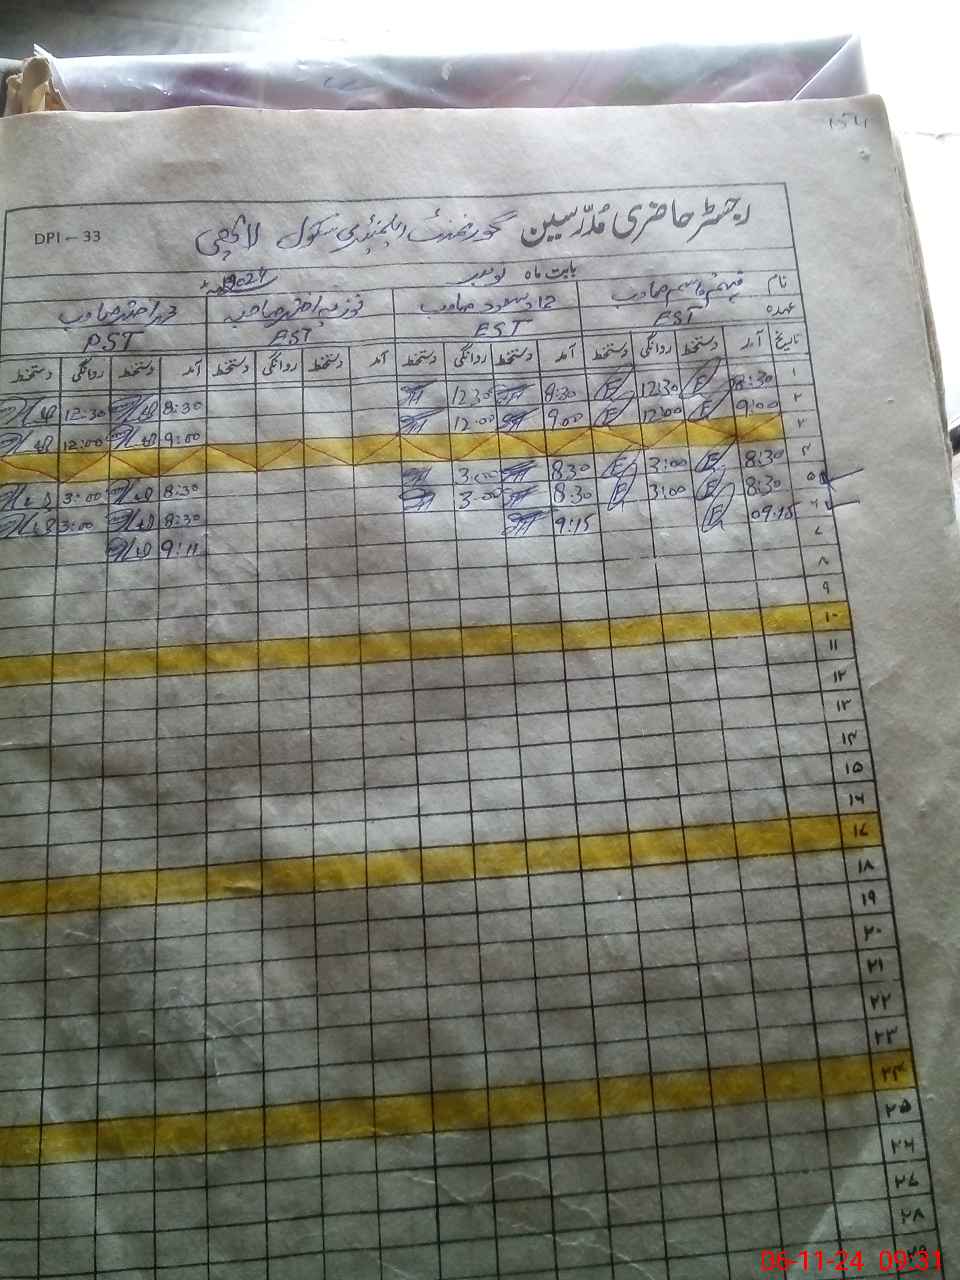 ۱۵۴
رجسٹر حاضری مُدرّسین گورنمنٹ ایلیمنٹری سکول لاکھی
DPI - 33
بابت ماہ نومبر 2024
نام صاحب مسعود صاحب فوزیہ اختر صاحبہ صاحب
عہدہ EST EST EST PST
تاریخ آمد دستخط روانگی دستخط آمد دستخط روانگی دستخط آمد دستخط روانگی دستخط آمد دستخط روانگی دستخط
۱ 8:30 12:30 8:30 12:30 8:30 12:30
۲ 9:00 12:00 9:00 12:00 9:00 12:00
۳
۴ 8:30 3:00 8:30 3:00 8:30 3:00
۵ 8:30 3:00 8:30 3:00 8:30 3:00
۶ 09:15 9:15 9:11
۷
۸
۹
۱۰
۱۱
۱۲
۱۳
۱۴
۱۵
۱۶
۱۷
۱۸
۱۹
۲۰
۲۱
۲۲
۲۳
۲۴
۲۵
۲۶
۲۷
۲۸
۲۹
06-11-24 09:31